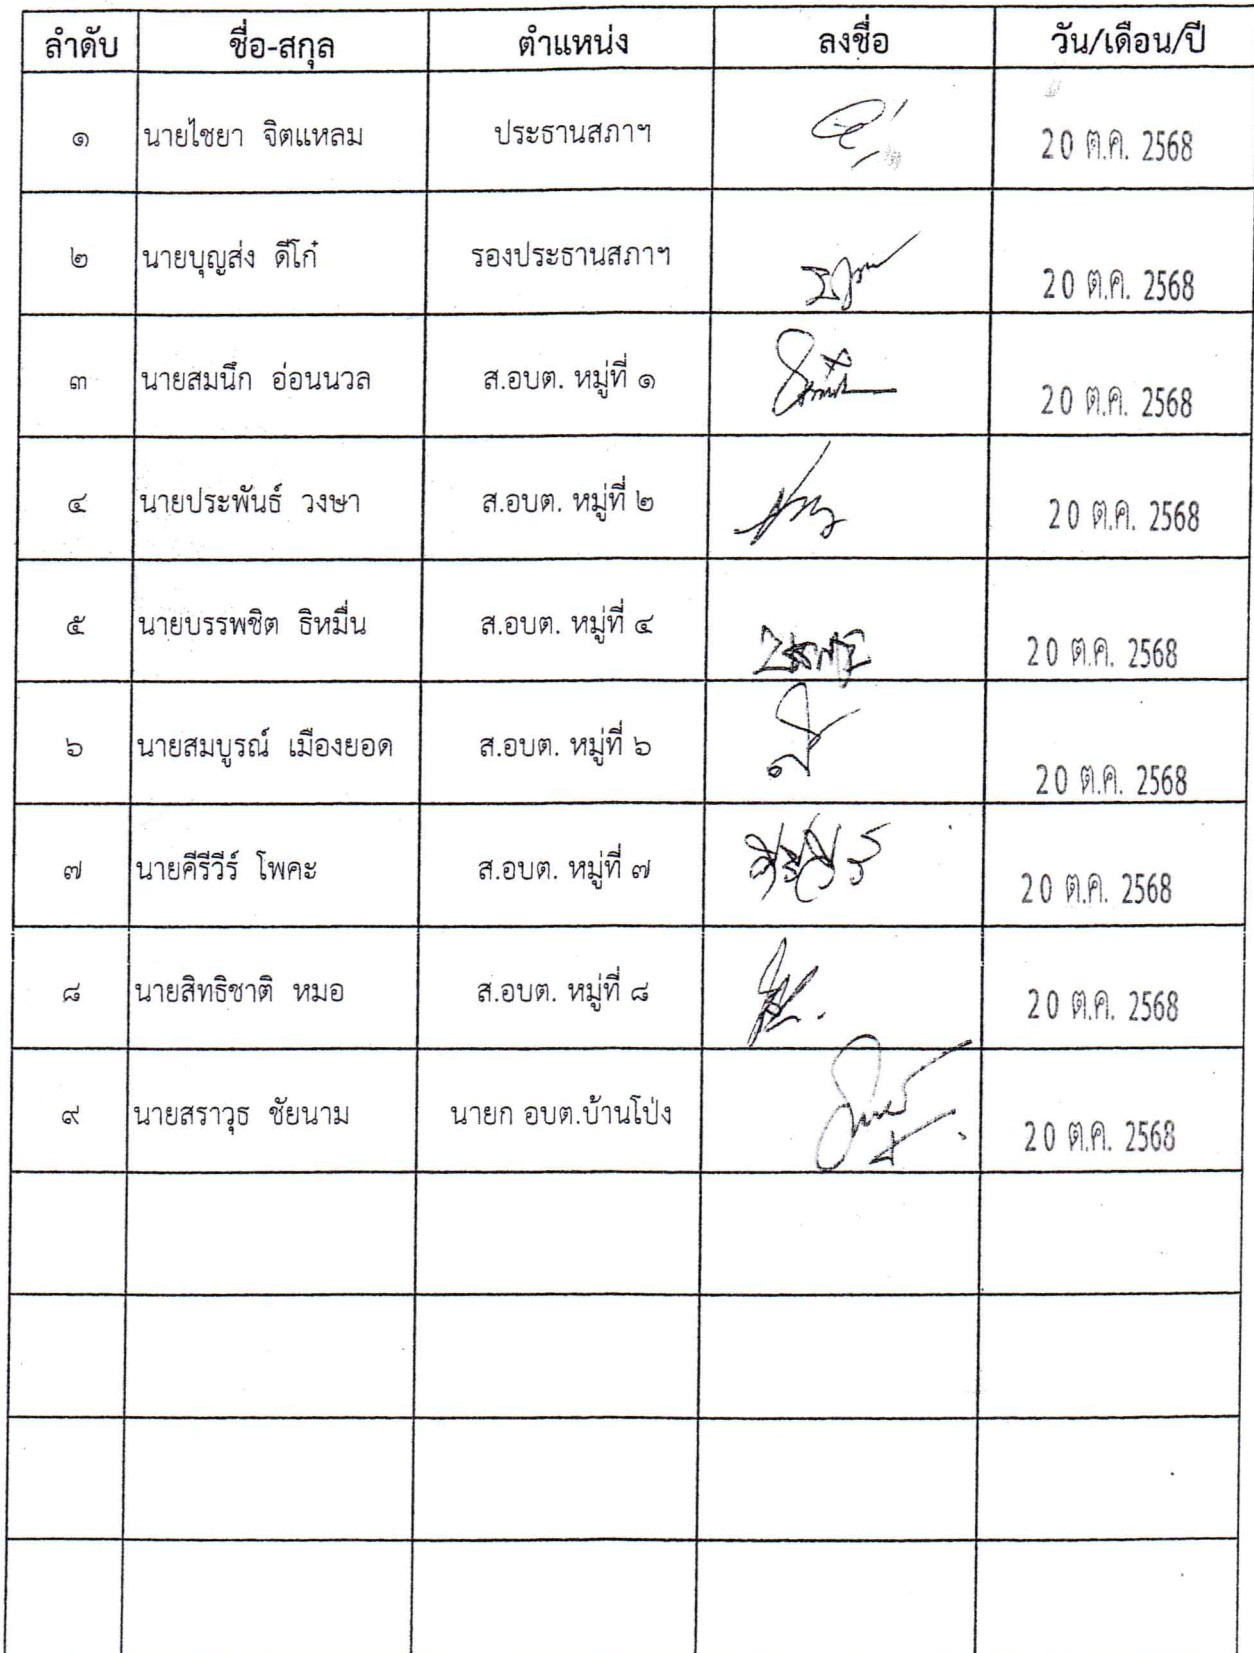 ลำดับ ชื่อ-สกุล ตำแหน่ง ลงชื่อ วัน/เดือน/ปี
๑ นายไชยา จิตแหลม ประธานสภาฯ 20 ต.ค. 2568
๒ นายบุญส่ง ดีโก๋ รองประธานสภาฯ 20 ต.ค. 2568
๓ นายสมนึก อ่อนนวล ส.อบต. หมู่ที่ ๑ 20 ต.ค. 2568
๔ นายประพันธ์ วงษา ส.อบต. หมู่ที่ ๒ 20 ต.ค. 2568
๕ นายบรรพชิต ธิหมื่น ส.อบต. หมู่ที่ ๔ 20 ต.ค. 2568
๖ นายสมบูรณ์ เมืองยอด ส.อบต. หมู่ที่ ๖ 20 ต.ค. 2568
๗ นายคีรีวีร์ โพคะ ส.อบต. หมู่ที่ ๗ 20 ต.ค. 2568
๘ นายสิทธิชาติ หมอ ส.อบต. หมู่ที่ ๘ 20 ต.ค. 2568
๙ นายสราวุธ ชัยนาม นายก อบต.บ้านโป่ง 20 ต.ค. 2568